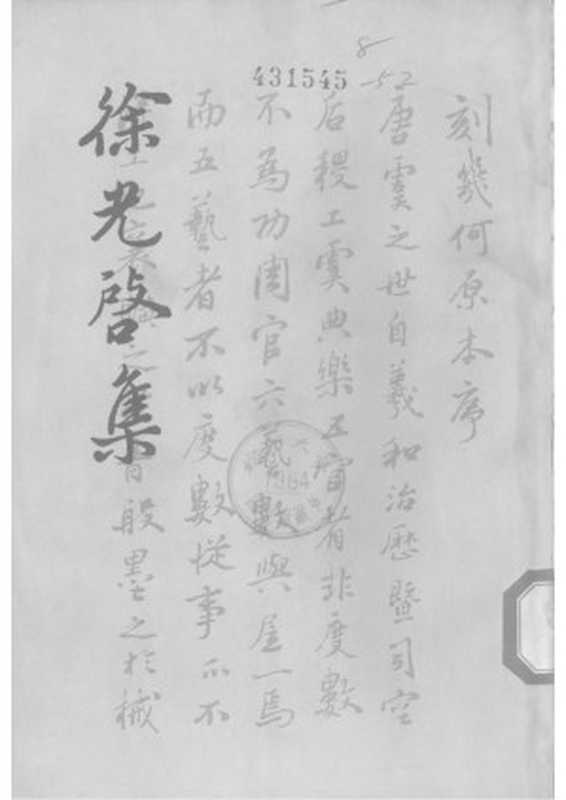 徐光啓集
431545
8
52
刻幾何原本序
唐虞之世自羲和治歷暨司空
后稷工虞典樂五官者非度數
不為功周官六藝數與居一焉
而五藝者不以度數從事亦不
般墨之於械